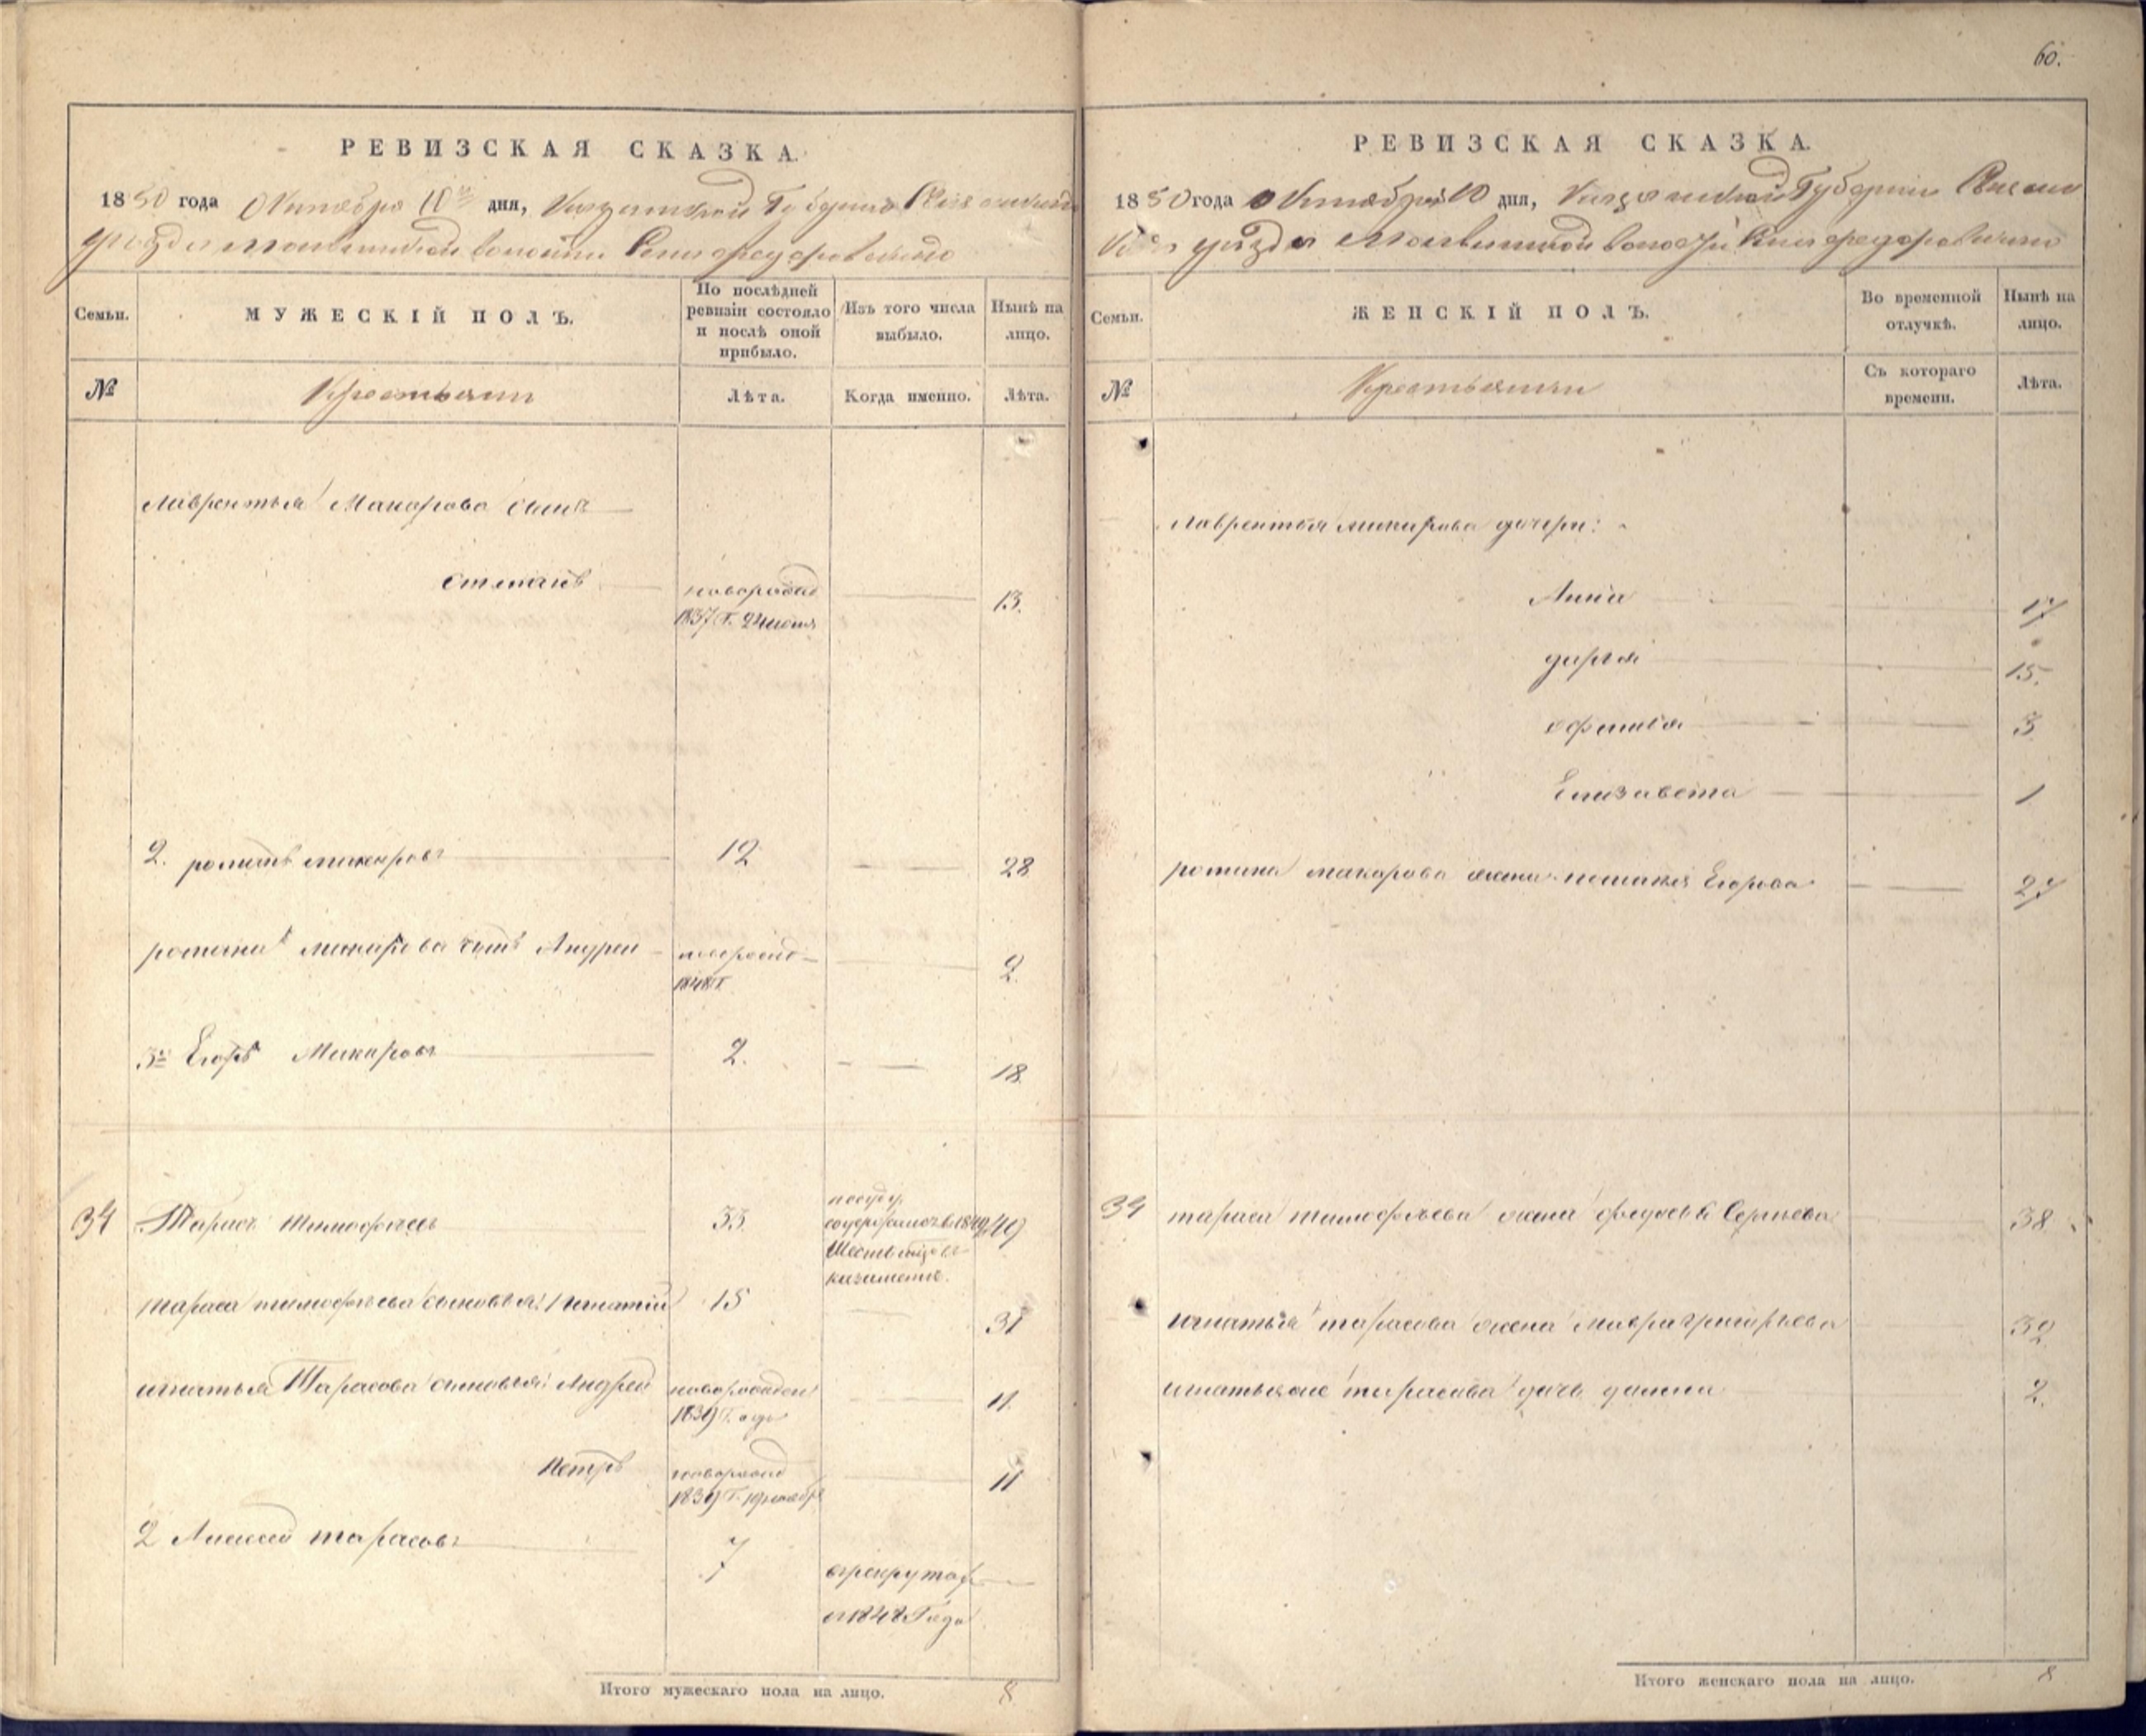 60.
РЕВИЗСКАЯ СКАЗКА.
1850 года Октября 10го дня, Казанской Губернии Свіяжскаго
уѣзда волости
Семьи.
МУЖЕСКІЙ ПОЛЪ.
По послѣдней ревизіи состояло и послѣ оной прибыло.
Изъ того числа выбыло.
Нынѣ на лицо.
№
Крестьяни
Лѣта.
Когда именно.
Лѣта.
Лаврентья Макарова сынъ
степанъ
новорожд
13.
1837 г.
2. романъ макаровъ 12 28
романа макарова сынъ Андреи новорожд 2
1848 г.
3й Егоръ Макаровъ 2. 18.
34 Тарасъ тимофеевъ 33 49
тараса тимофеева сыновья: Игнатій 15 31
игнатья Тарасова сыновья: Андрей новорожден 11.
1839 г.
Петръ новорожд 11
1839 г.
2 Алексей тарасовъ 7
в рекрутах
с 1848 Года
Итого мужескаго пола на лицо. 8
РЕВИЗСКАЯ СКАЗКА.
1850 года Октября 10 дня, Казанской Губернии Свіяж
уѣзда волости
Семьи.
ЖЕНСКІЙ ПОЛЪ.
Во временной отлучкѣ.
Нынѣ на лицо.
№
Крестьяни
Съ котораго времени.
Лѣта.
лаврентья макарова дочери:
Анна 17
дарья 15.
офимья 3
Елизавета 1
романа макарова жена наталья Егорова 27
34 тараса тимофеева жена федосья Сергеева 38
игнатья тарасова жена мавра григорьева 32
игнатья же тарасова дочь 2.
Итого женскаго пола на лицо. 8